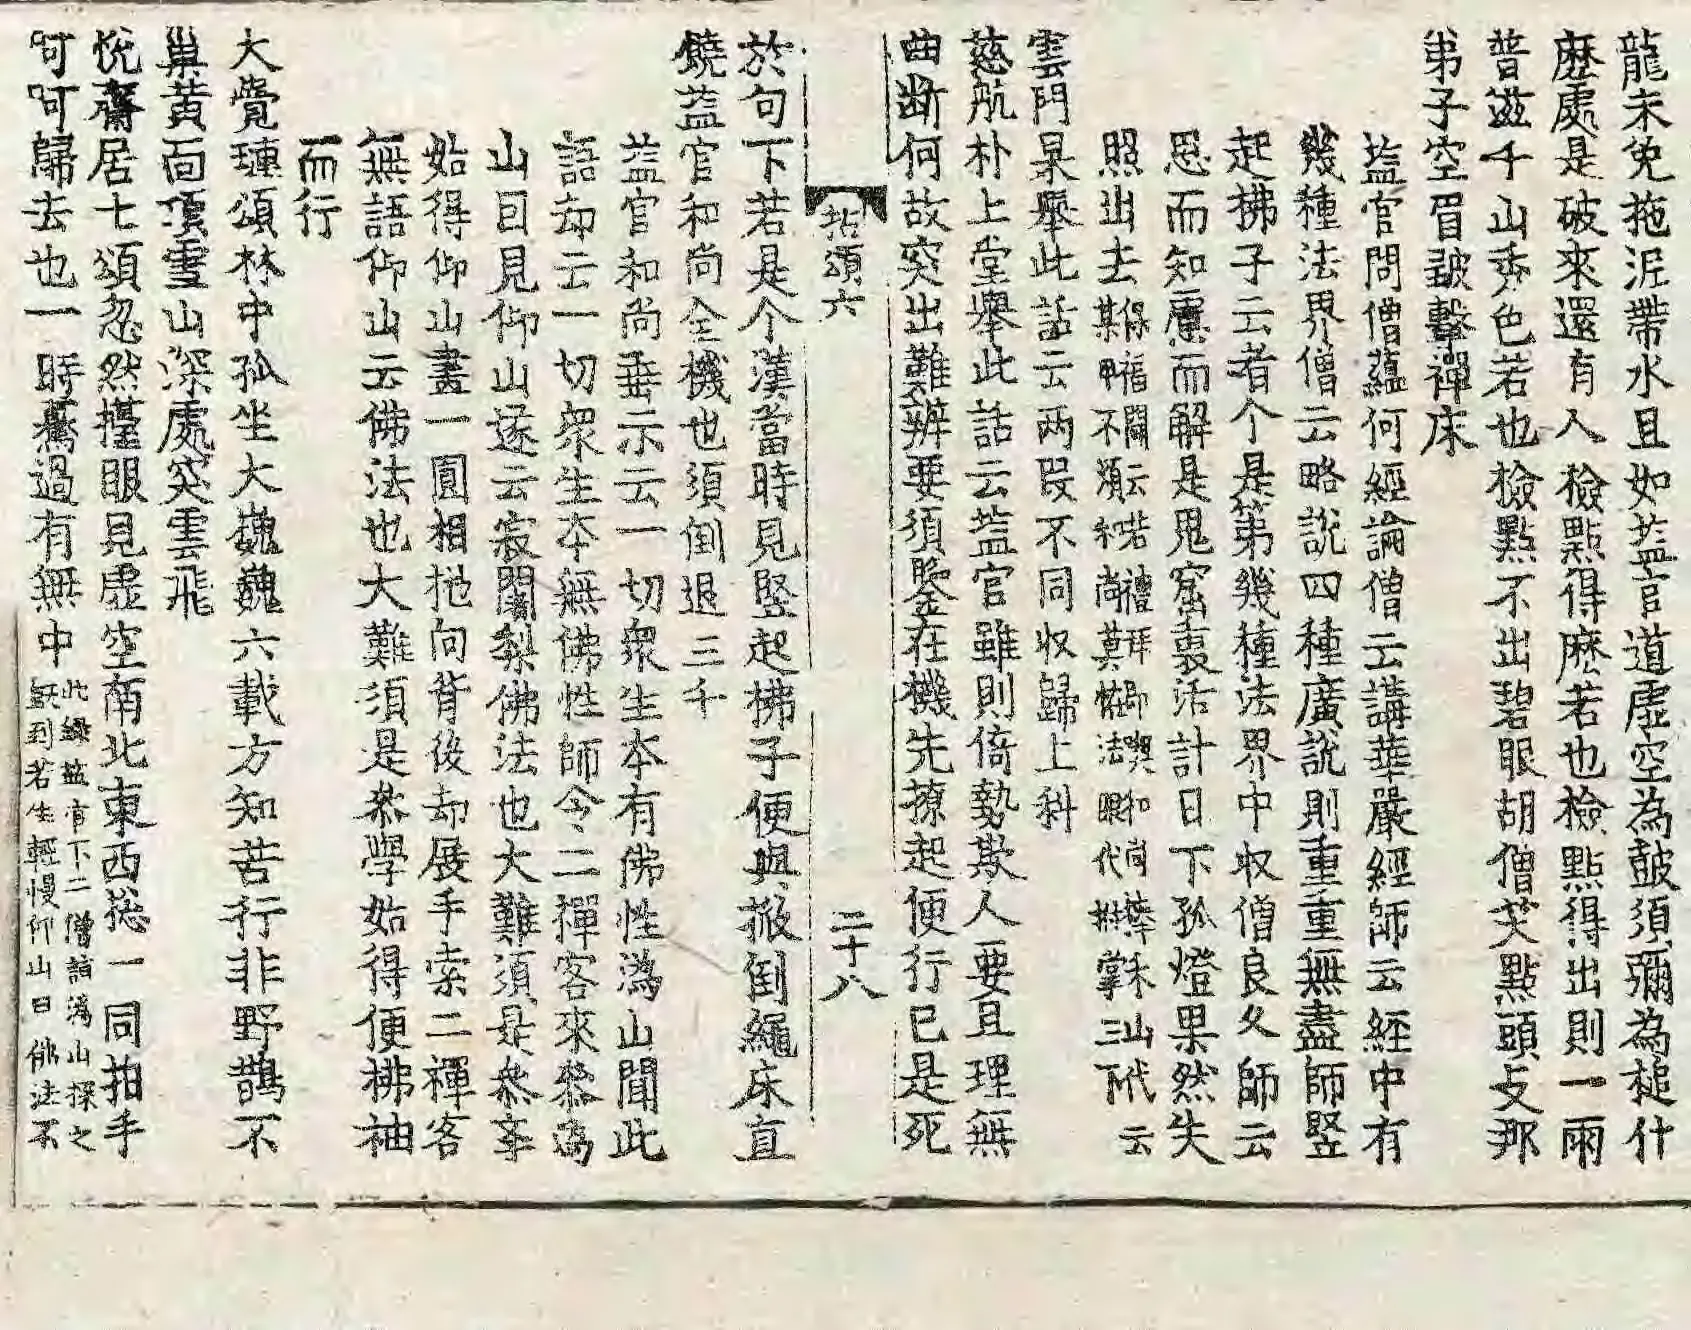 龍未免拖泥帶水且如盐官道虛空為皷須彌為槌什
麽處是破來還有人檢點得麽若也檢點得出則一雨
普滋千山秀色若也檢點不出碧眼胡僧笑點頭攴那
弟子空眉皷擊禪床
盐官問僧蘊何經論僧云講華嚴經師云經中有
幾種法界僧云略說四種廣說則重重無盡師竪
起拂子云者个是第幾種法界中収僧良久師云
思而知慮而解是鬼窟裏活計日下孤燈果然失
照出去保福聞云若禮拜即喫和尚棒禾山代云
某甲不煩和尚莫恠法眼代拊掌三下
雲門杲擧此話云兩叚不同収歸上科
慈航朴上堂擧此話云盐官雖則倚勢欺人要且理無
曲断何故突出難辨要須鍳在機先撩起便行已是死
拈頌六 二十八
於句下若是个漢當時見竪起拂子便與掀倒繩床直
饒盐官和尚全機也須倒退三千
盐官和尚垂示云一切衆生本有佛性溈山聞此
語却云一切衆生本無佛性師令二禪客來叅溈
山目見仰山遂云寂闍梨佛法也大難須是叅學
始得仰山畫一圓相抛向背後却展手索二禪客
無語仰山云佛法也大難須是叅學始得便拂袖
而行
大覺璉頌林中孤坐大巍巍六載方知苦行非野鵲不
巢黄面頂雪山深處突雲飛
悅齋居士頌忽然擡眼見虛空南北東西揔一同拍手
呵呵歸去也一時驀過有無中此錄盐官下二僧詣溈山探之
既到若生輕慢仰山曰佛法不